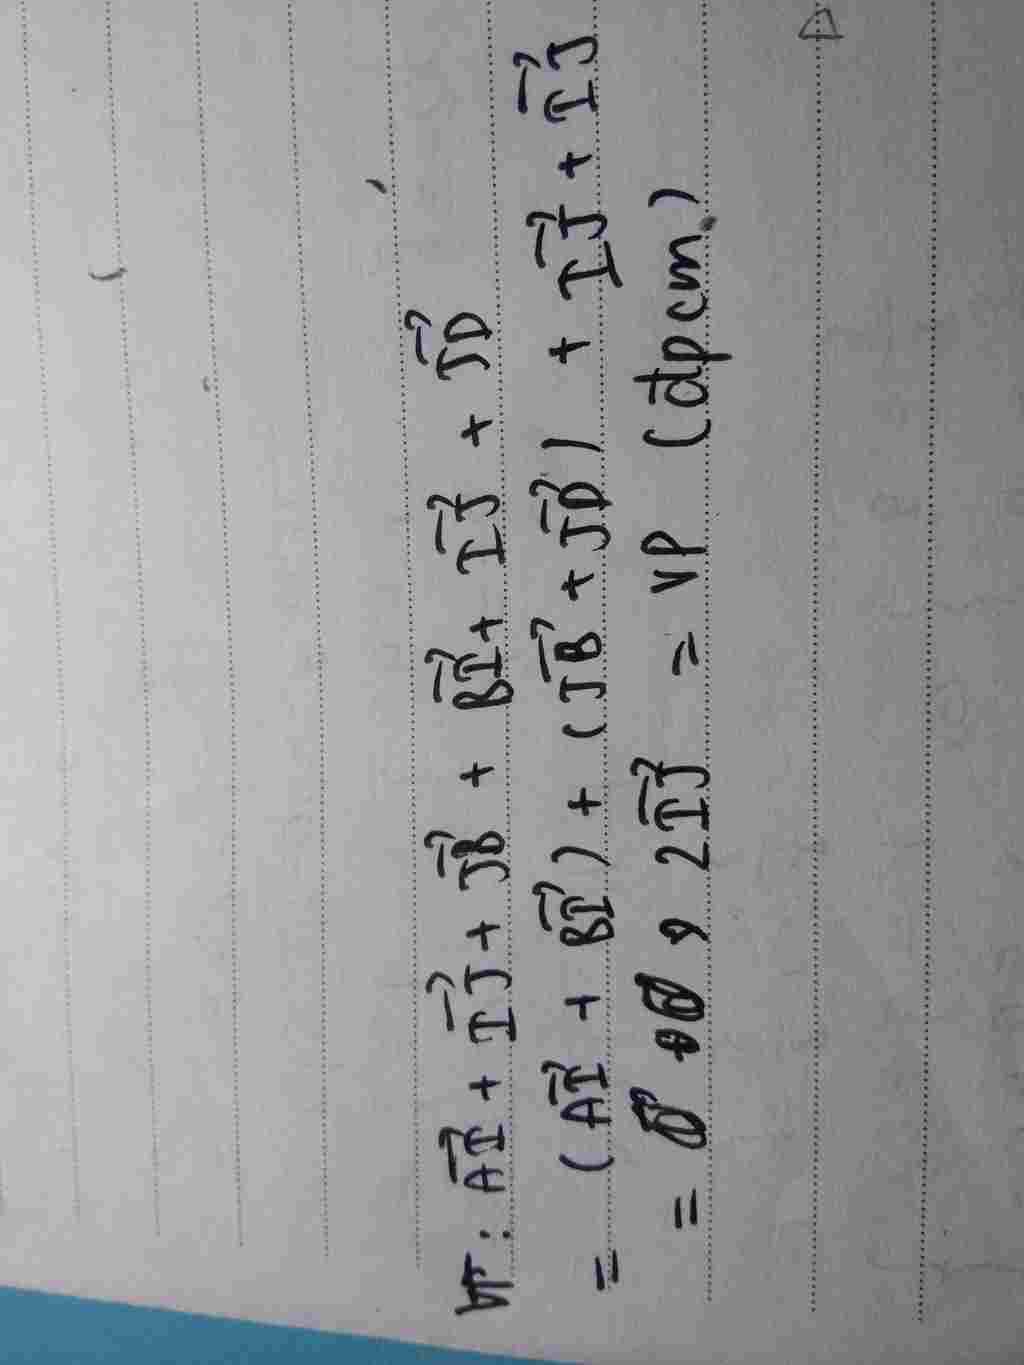 VT: AI⃗ + IJ⃗ + JB⃗ + BI⃗ + IJ⃗ + JD⃗
= (AI⃗ + BI⃗) + (JB⃗ + JD⃗) + IJ⃗ + IJ⃗
= 2IJ⃗ = VP (đpcm)